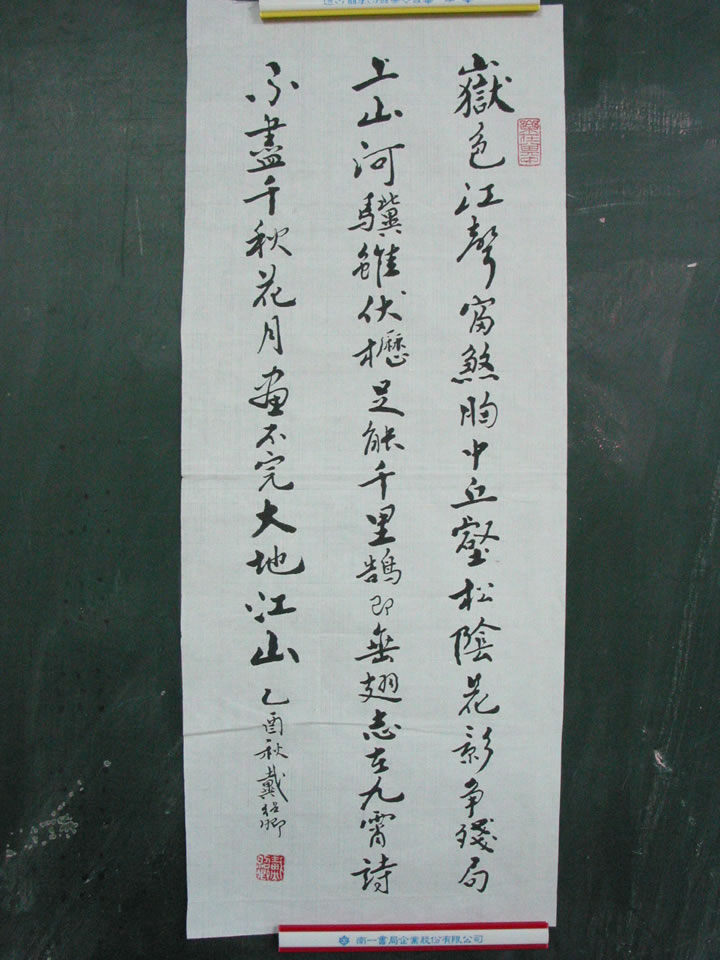 嶽色江聲富煞胸中丘壑松陰花影爭殘局
上山河驥雖伏櫪足能千里鵠即垂翅志在九霄詩
不盡千秋花月畫不完大地江山 乙酉秋戴紹卿
南一書局企業股份有限公司